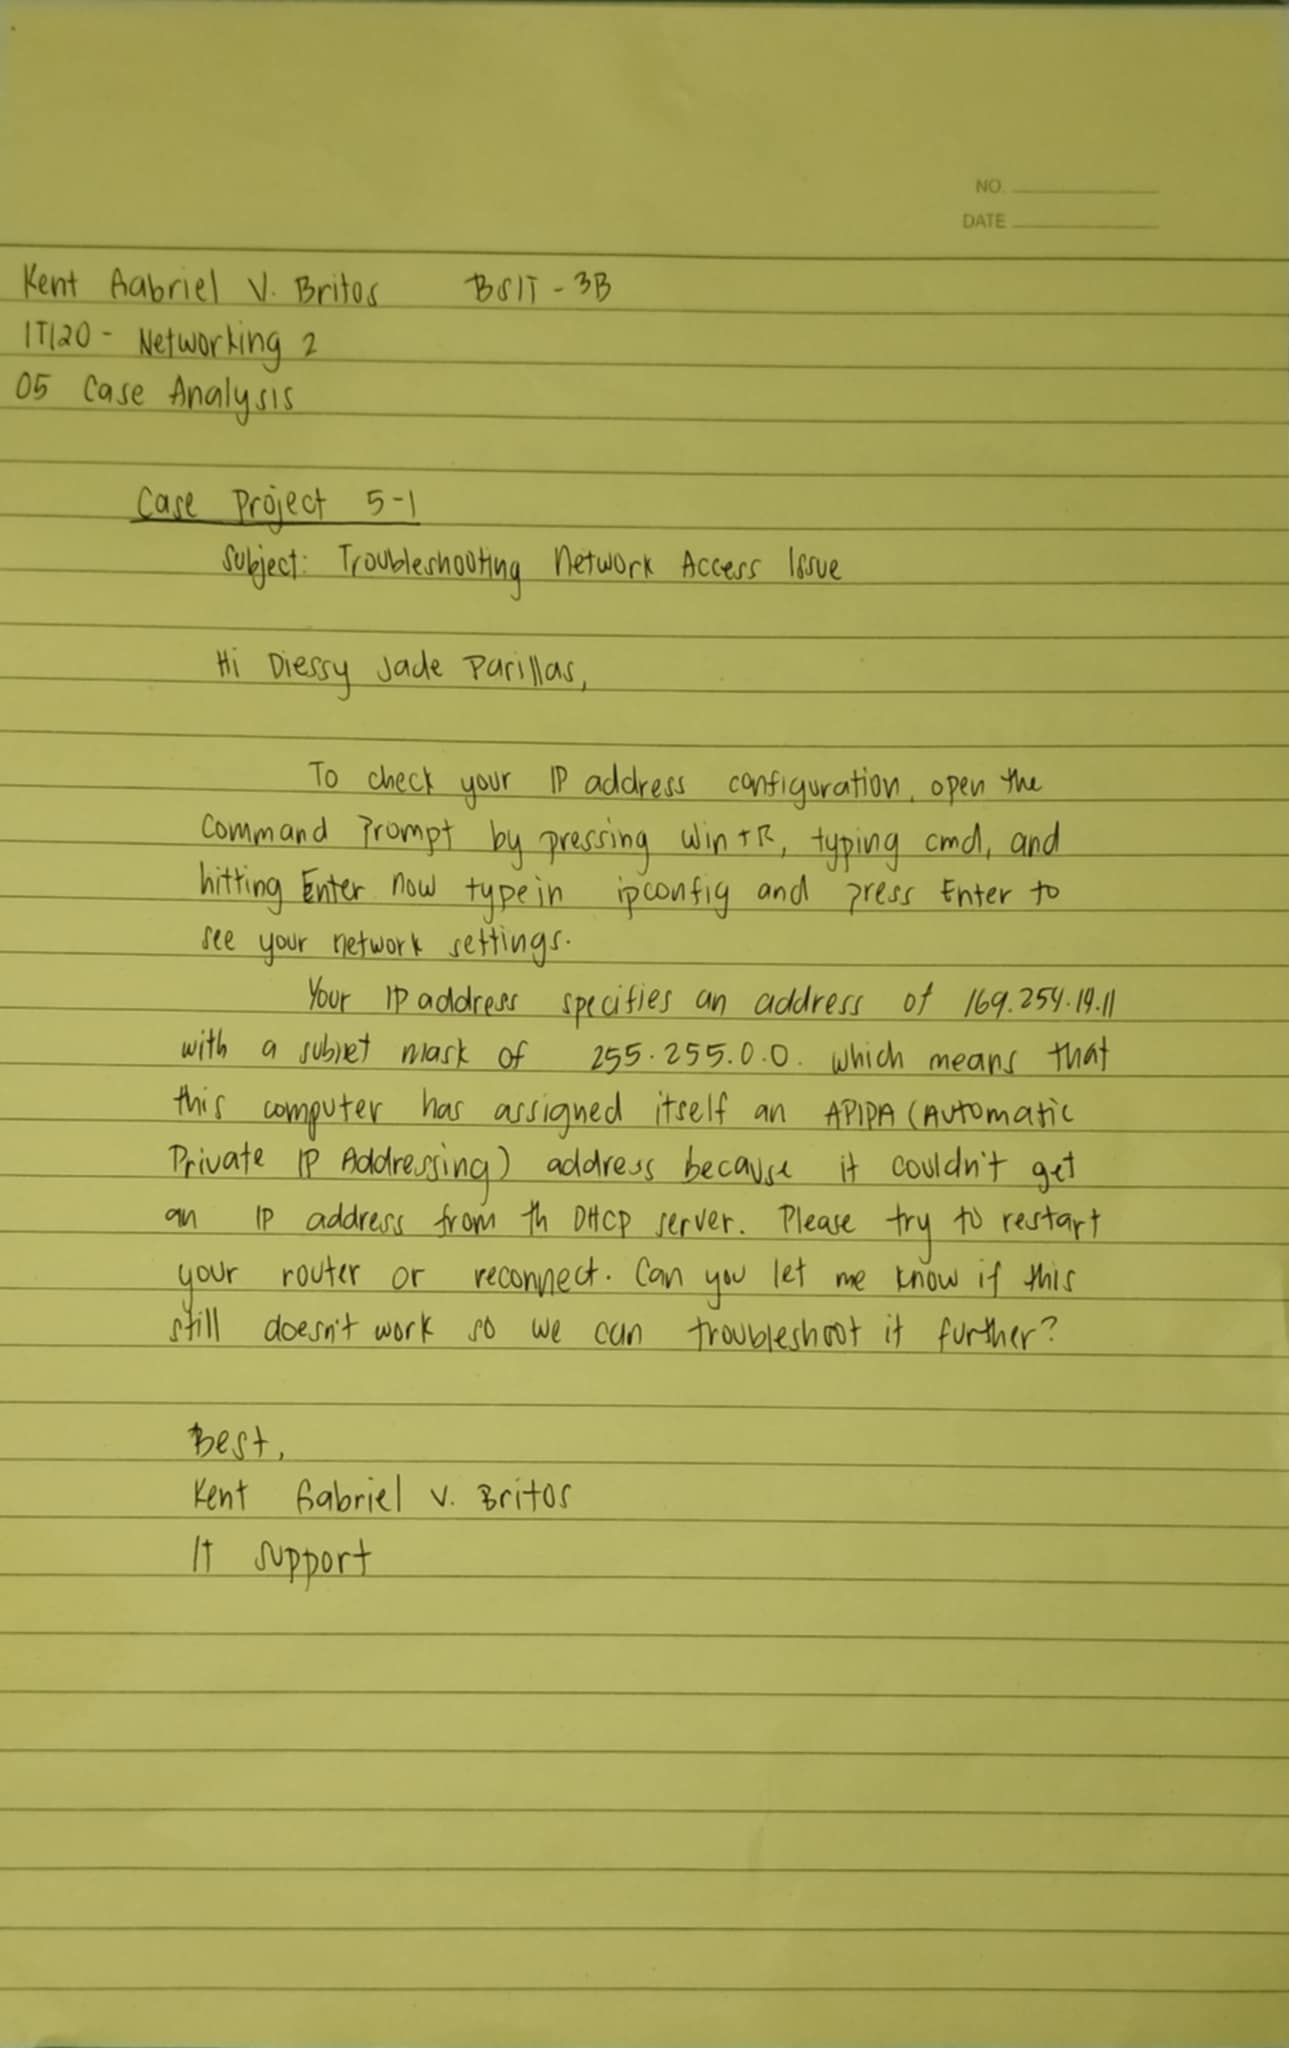 NO.
DATE
Kent Gabriel V. Britos BSIT - 3B
IT120 - Networking 2
05 Case Analysis
Case Project 5-1
Subject: Troubleshooting Network Access Issue
Hi Diessy Jade Parillas,
To check your IP address configuration, open the
Command Prompt by pressing Win+R, typing cmd, and
hitting Enter now type in ipconfig and press Enter to
see your network settings.
Your IP address specifies an address of 169.254.19.11
with a subnet mask of 255.255.0.0. which means that
this computer has assigned itself an APIPA (Automatic
Private IP Addressing) address because it couldn't get
an IP address from th DHCP server. Please try to restart
your router or reconnect. Can you let me know if this
still doesn't work so we can troubleshoot it further?
Best,
Kent Gabriel V. Britos
IT Support